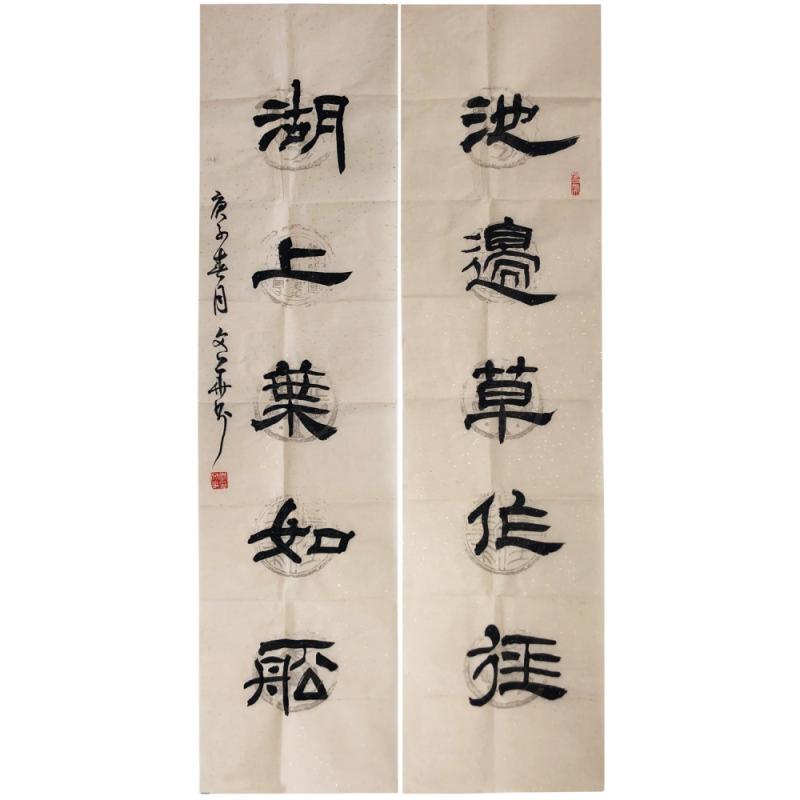 池邊草作徑
湖上葉如船
庚子春月文華書